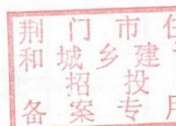 荆门市住
和城乡建
招投
备案专用